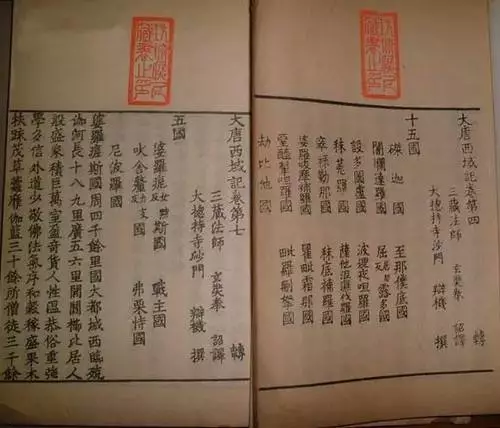 大唐西域記卷第四 轉
三藏法師 玄奘奉 詔譯
大總持寺沙門 辯機 撰
十五國
磔迦國 至那僕底國
闍爛達羅國 屈露多國
設多圖盧國 波理夜呾羅國
秣菟羅國 薩他泥濕伐羅國
窣祿勤那國 秣底補羅國
婆羅吸摩補羅國 瞿毗霜那國
堊醯掣呾羅國 毗羅刪拏國
劫比他國
大唐西域記卷第七 轉
三藏法師 玄奘奉 詔譯
大總持寺沙門 辯機 撰
五國
婆羅痆女黠反斯國 戰主國
吠舍釐力支反國 弗栗恃國
尼波羅國
婆羅痆斯國周四千餘里國大都城西臨殑
伽河長十八九里廣五六里閭閻櫛比居人
殷盛家積巨萬室盈奇貨人性溫恭俗重強
學多信外道少敬佛法氣序和穀稼盛果木
扶踈茂草靃靡伽藍三十餘所僧徒三千餘